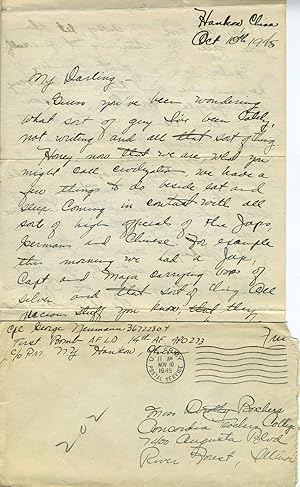 Hankow China
Oct 10th 1945
My Darling,-
Guess you've been wondering
what sort of guy I've been lately,
not writing and all that sort of thing
Honey, now that we are, what you
might call civilization we have a
few things to do beside eat and
sleep. Coming in contact with all
sort of high official of the Japs,
Germans and Chinese. For example
this morning we had a Jap,
Capt and Major carrying bars of
silver and that sort of thing all
precious stuff you know, that they
Cpl George Neumann
First Bomb AFLD 14th AF APO 273
c/o Pm N.Y. Hankow, China
Free
U.S. ARMY
11 AM
NOV 10
1945
POSTAL SERVICE
202
Miss Dotty
Concordia Teachers College
7400 Augusta Blvd
River Forest, Illinois